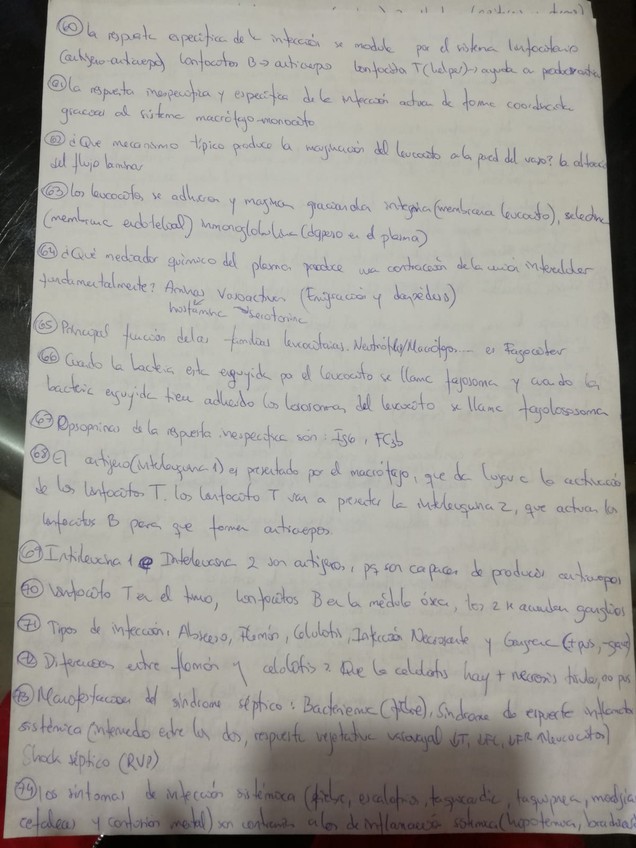 60 la respuesta específica de la infección se modula por el sistema linfocitario
(antígeno-anticuerpo) linfocitos B → anticuerpo linfocito T (helper) → ayuda a
61 la respuesta inespecífica y específica de la infección actúa de forma coordinada
gracias al sistema macrófago-monocito
62 ¿Que mecanismo típico produce la marginación del leucocito a la pared del vaso? la
del flujo laminar
63 los leucocitos, se adhieren y marginan gracias a la integrina (membrana leucocito),
(membrana endotelial) (disperso en el plasma)
64 ¿Qué mediador químico del plasma produce una contracción de la unión intercelular
fundamentalmente? Aminas Vasoactivas (Emigración y diapédesis)
histamina serotonina
65 Principal función de las familias leucocitarias. Neutrófilo/Macrófago.... es Fagocitar
66 Cuando la bacteria esta engullida por el leucocito se llama fagosoma y cuando la
bacteria engullida tiene adheridos los lisosomas del leucocito se llama fagolisosoma
67 Opsoninas de la respuesta inespecífica son: IgG, FC3b
68 El antígeno (interleuquina 1) es presentado por el macrófago, que da lugar a la activación
de los linfocitos T. los linfocito T van a presentar la interleuquina 2, que actúan los
linfocitos B para que formen anticuerpos.
69 Interleucina 1 e Interleucina 2 son antígenos, pq son capaces de producir anticuerpos
70 linfocito T en el timo, linfocitos B en la médula ósea, los 2 se acumulan ganglios
71 Tipos de infección: Absceso, Flemón, Celulitis, Infección Necrosante y Gangrena (+pus, -gas)
72 Diferencias entre flemón y celulitis? Que la celulitis hay + necrosis tisular, no pus
73 Manifestaciones del síndrome séptico: Bacteriemia (fiebre), Síndrome de respuesta inflamatoria
sistémica (intermedio entre los dos, respuesta vegetativa vasovagal ↓T, ↓FC, ↓FR ↑leucocitos)
Shock séptico (RVP)
74 los síntomas de infección sistémica (fiebre, escalofrío, taquicardia, taquipnea,
cefaleas y confusión mental) son contrarios a los de inflamación sistémica (hipotermia,